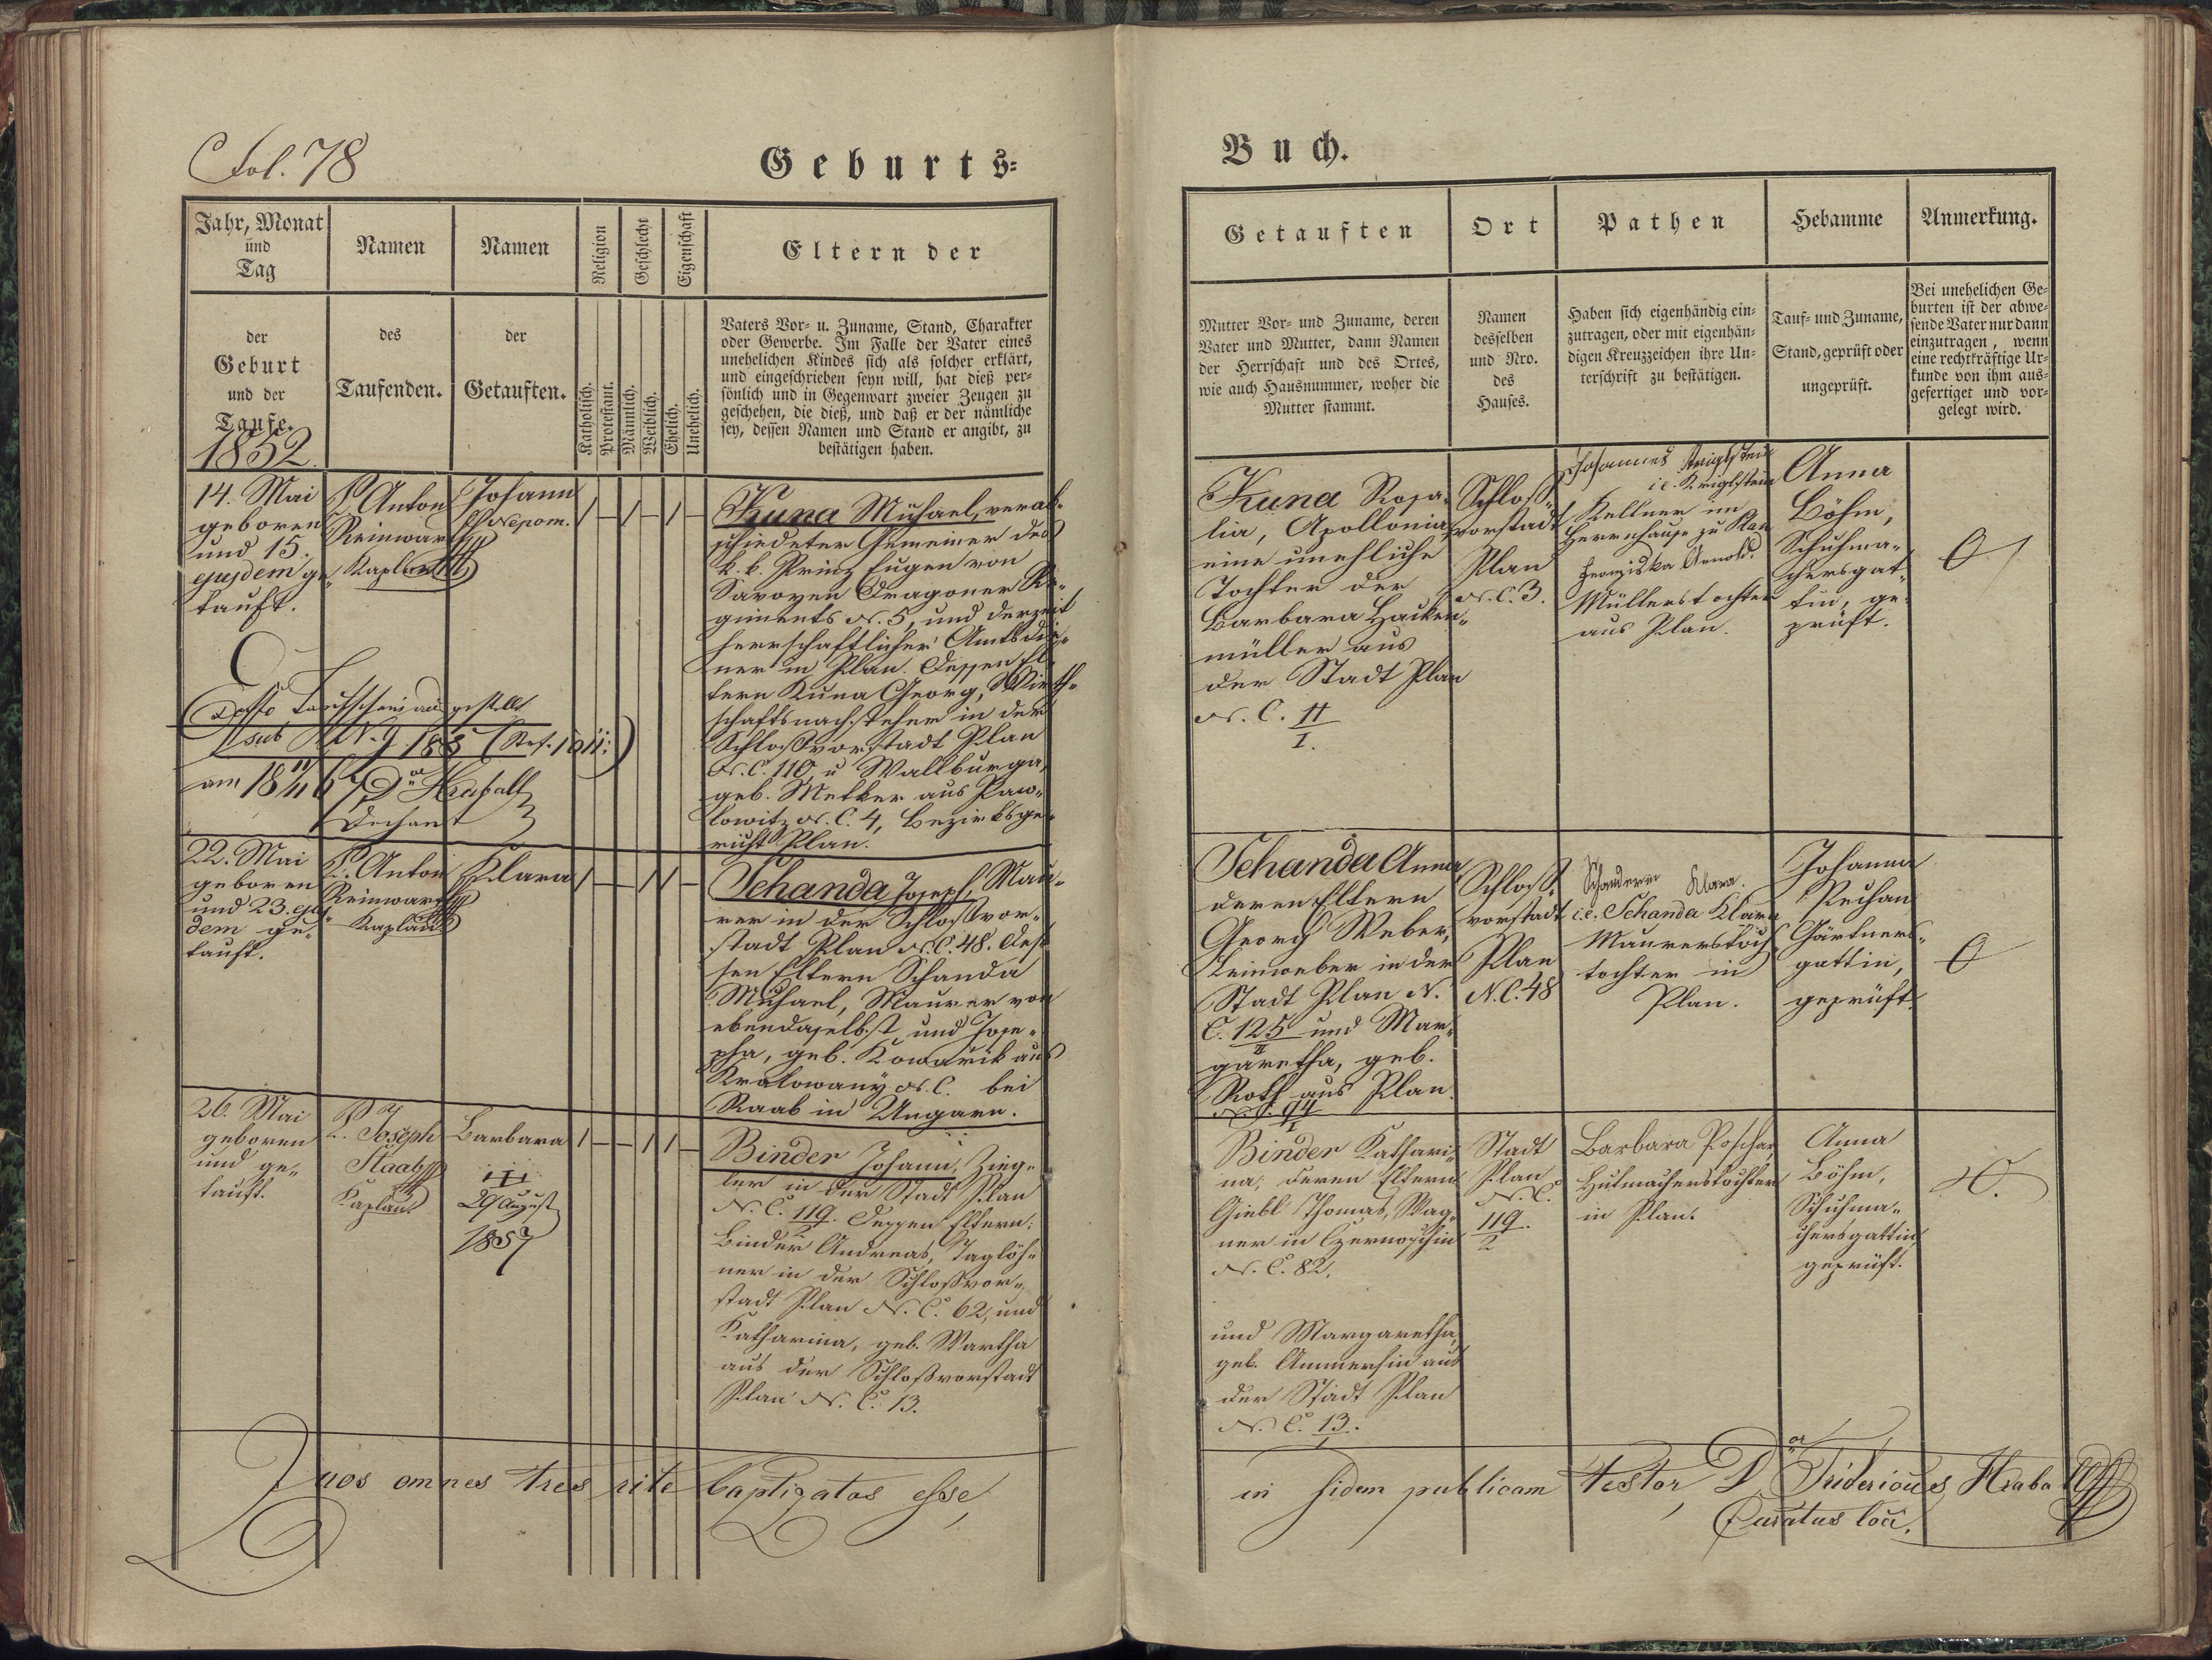 Fol. 78
Geburts-
Jahr, Monat
und
Tag
der
Geburt
und der
Taufe.
1852
Namen
des
Taufenden.
Namen
der
Getauften.
Religion
Katholisch.
Protestant.
Geschlecht
Männlich.
Weiblich.
Eigenschaft
Ehelich.
Unehelich.
Eltern der
Vaters Vor- u. Zuname, Stand, Charakter
oder Gewerbe. Im Falle der Vater eines
unehelichen Kindes sich als solcher erklärt,
und eingeschrieben seyn will, hat dieß per-
sönlich und in Gegenwart zweier Zeugen zu
geschehen, die dieß, und daß er der nämliche
sey, dessen Namen und Stand er angibt, zu
bestätigen haben.
14. Mai
geboren
und 15.
ejusdem ge-
tauft.
P. Anton
Reinwart
Kaplan
Johann
Nepom.
1 — 1 — 1 —
Kuna Michael, verab-
schiedeter Gemeiner des
k. k. Prinz Eugen von
Savoyen Dragoner Re-
giments N. 5, und derzeit
herrschaftlicher Amtsdie-
ner in Plan. Dessen El-
tern Kuna Georg, Wirth-
schafts in der
Schloßvorstadt Plan
N. C. 110, u Wallburga,
geb. Metker aus Paw-
lowitz N. C. 4, Bezirksge-
richt Plan.
Taufschein ausgestellt
sub N. 9
am 18/11 67 Dr Hrabak
Dechant
22. Mai
geboren
und 23. ejus-
dem ge-
tauft.
P. Anton
Reinwart
Kaplan
Klara
1 — — 1 1 —
Schanda Joseph, Mau-
rer in der Schloßvor-
stadt Plan N. C. 48. Des-
sen Eltern Schanda
Michael, Maurer von
ebendaselbst und Jose-
pha, geb. Kowařik aus
Kralowany N. C. bei
Raab in Ungarn.
26. Mai
geboren
und ge-
tauft.
P. Joseph
Staab
Kaplan
Barbara
29 August
1857
1 — — 1 1 —
Binder Johann, Zieg-
ler in der Stadt Plan
N. C. 119/2. Dessen Eltern:
Binder Andreas, Taglöh-
ner in der Schloßvor-
stadt Plan N. C. 62, und
Katharina, geb. Wartha
aus der Schloßvorstadt
Plan N. C. 13.
Quos omnes tres rite baptizatos esse,
Buch.
Getauften
Mutter Vor- und Zuname, deren
Vater und Mutter, dann Namen
der Herrschaft und des Ortes,
wie auch Hausnummer, woher die
Mutter stammt.
Ort
Namen
desselben
und Nro.
des
Hauses.
Pathen
Haben sich eigenhändig ein-
zutragen, oder mit eigenhän-
digen Kreuzzeichen ihre Un-
terschrift zu bestätigen.
Hebamme
Tauf- und Zuname,
Stand, geprüft oder
ungeprüft.
Anmerkung.
Bei unehelichen Ge-
burten ist der abwe-
sende Vater nur dann
einzutragen, wenn
eine rechtkräftige Ur-
kunde von ihm aus-
gefertiget und vor-
gelegt wird.
Kuna Rosa-
lia, Apollonia
eine unehliche
Tochter der
Barbara Hacken-
müller aus
der Stadt Plan
N. C. 11/I.
Schloß-
vorstadt
Plan
N. C. 3.
Johannes Kriglstein
i.e. Kriglstein
Kellner im
Herrnhause zu Plan
Franziska Arnold.
Müllerstochter
aus Plan.
Anna
Böhm,
Schuhma-
chersgat-
tin, ge-
prüft.
Schanda Anna
deren Eltern
Georg Weber,
Leinweber in der
Stadt Plan N.
C. 125/II und Mar-
garetha, geb.
Roth aus Plan.
N. C. 94/I
Schloß-
vorstadt
Plan
N. C. 48
Schanderin Klara.
i.e. Schanda Klara
Maurerstoch
tochter in
Plan.
Johanna
Pechan
Gärtners-
gattin,
geprüft.
Binder Kathari-
na, deren Eltern
Giebl Thomas, Wag-
ner in Czernoschin
N. C. 82,
und Margaretha,
geb. Ammerhin aus
der Stadt Plan
N. C. 13/1.
Stadt
Plan
N. C.
119/2
Barbara Poschar
Hutmacherstochter
in Plan.
Anna
Böhm,
Schuhma-
chersgattin
geprüft.
in fidem publicam testor, Dr Fridericus Hrabak
Curatus loci.